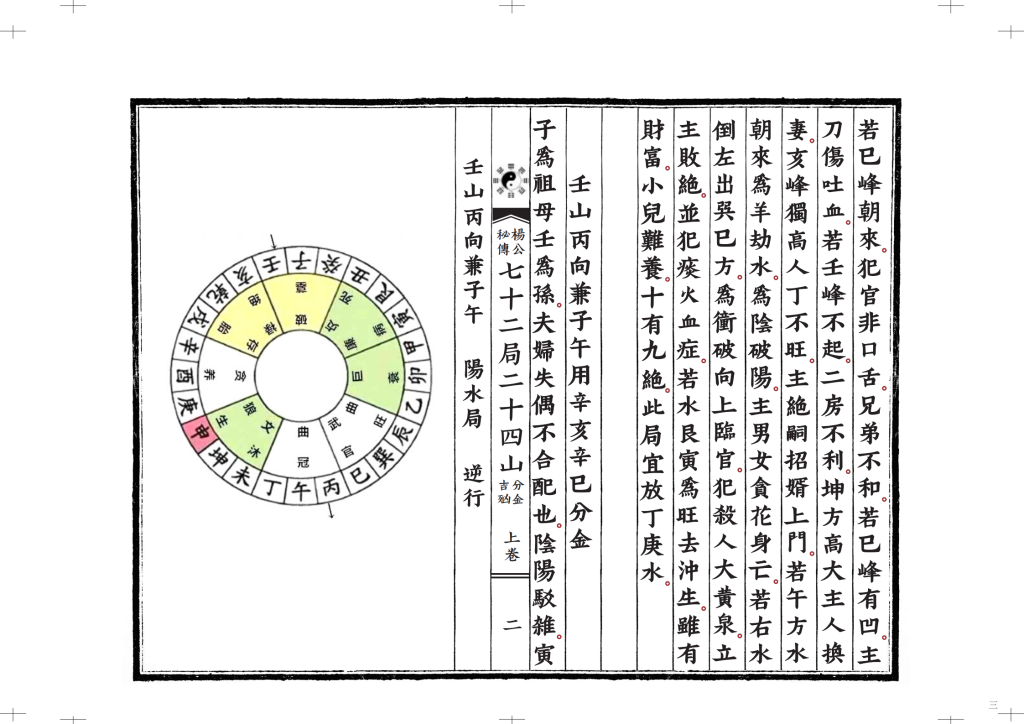 若巳峰朝來。犯官非口舌。兄弟不和。若巳峰有凹。主
刀傷吐血。若壬峰不起。二房不利。坤方高大主人換
妻。亥峰獨高人丁不旺。主絶嗣招婿上門。若午方水
朝來爲羊劫水。爲陰破陽。主男女貪花身亡。若右水
倒左出巽巳方。爲衝破向上臨官。犯殺人大黄泉。立
主敗絶。並犯痰火血症。若水艮寅爲旺去沖生。雖有
財富。小兒難養。十有九絶。此局宜放丁庚水。
壬山丙向兼子午用辛亥辛巳分金
子爲祖母壬爲孫。夫婦失偶不合配也。陰陽駁雜。寅
楊公秘傳 七十二局二十四山 分金吉凶 上卷 二
壬山丙向兼子午 陽水局 逆行
壬子癸丑艮寅甲卯乙辰巽巳丙午丁未坤申庚酉辛戌乾亥
墓死病衰旺官冠沐生养胎绝
破廉贞巨曲武曲文狼贪存禄
三